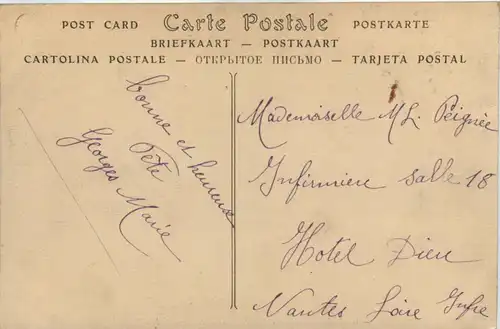 POST CARD Carte Postale POSTKARTE
BRIEFKAART – POSTKAART
CARTOLINA POSTALE – ОТКРЫТОЕ ПИСЬМО – TARJETA POSTAL
bonne et heureuse
Fête
Georges Marie
Mademoiselle ML. Peignée
Infirmieu salle 18
Hotel Dieu
Nantes Loire Infre